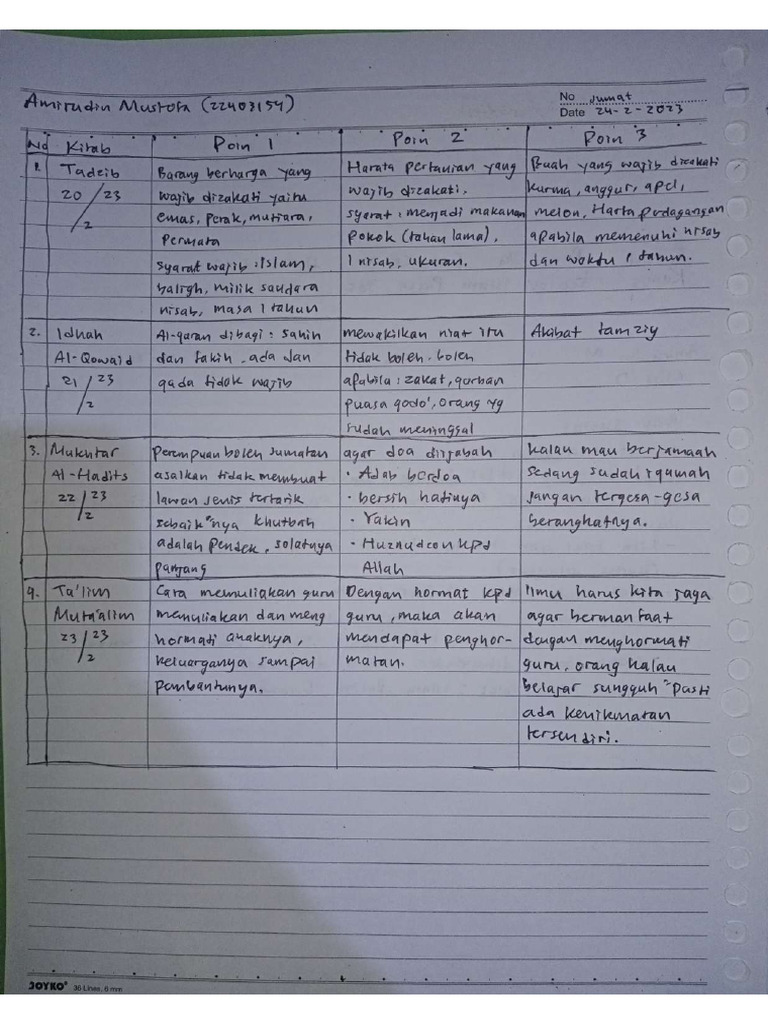 Amirudin Mustofa (22403154)
No Jumat
Date 24-2-2023
No Kitab Poin 1 Poin 2 Poin 3
1. Tadzib
20/23/2
Barang berharga yang
wajib dizakati yaitu
emas, perak, mutiara,
permata
syarat wajib : Islam,
baligh, milik saudara
nisab, masa 1 tahun
Harata pertanian yang
wajib dizakati,
syarat : menjadi makanan
pokok (tahan lama),
1 nisab, ukuran.
Buah yang wajib dizakati
kurma, anggur, apel,
melon, Harta perdagangan
apabila memenuhi nisab
dan waktu 1 tahun.
2. Idhah
Al-Qowaid
21/23/2
Al-quran dibagi : sahih
dan fakih. ada dan
qada tidak wajib
mewakilkan niat itu
tidak boleh. boleh
apabila : zakat, qurban
puasa qodo', orang yg
sudah meninggal
Akibat tamziy
3. Mukhtar
Al-Hadits
22/23/2
Perempuan boleh sumatan
asalkan tidak membuat
lawan jenis tertarik
sebaik"nya khutbah
adalah pendek, solatnya
panjang
agar doa diijabah
• Adab berdoa
• bersih hatinya
• Yakin
• Huznudzon kpd
Allah
kalau mau berjamaah
sedang sudah iqamah
jangan tergesa-gesa
berangkatnya.
4. Ta'lim
Muta'alim
23/23/2
Cara memuliakan guru
memuliakan dan meng
hormati anaknya,
keluarganya sampai
pembantunya.
Dengan hormat kpd
guru, maka akan
mendapat penghor-
matan.
Ilmu harus kita jaga
agar bermanfaat
dengan menghormati
guru, orang kalau
belajar sungguh" pasti
ada kenikmatan
tersendiri.
JOYKO® 36 Lines, 6 mm